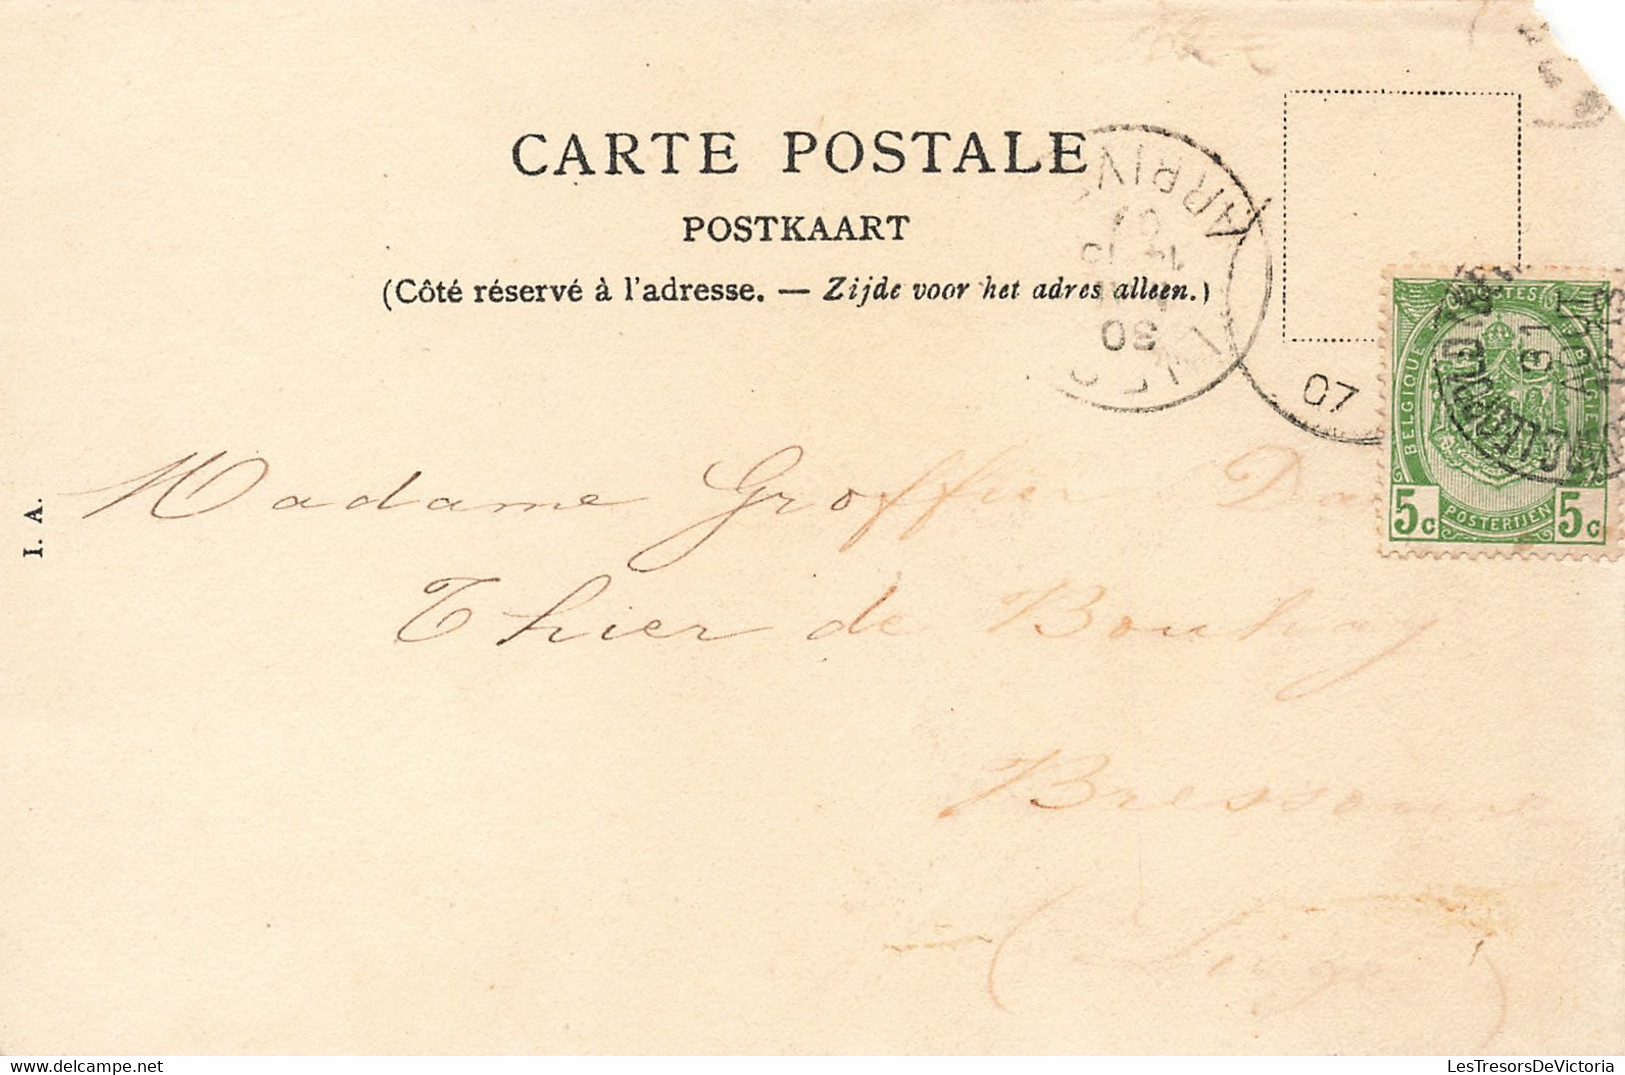 CARTE POSTALE
POSTKAART
(Côté réservé à l'adresse. — Zijde voor het adres alleen.)
ARRIV
30
07
31
AOUT
POSTES
BELGIQUE
BELGIË
5c POSTERIJEN 5c
I. A.
Madame Groffier
Thier de Bouhay
Bressoux
(Liège)
LesTresorsDeVictoria
www.delcampe.net